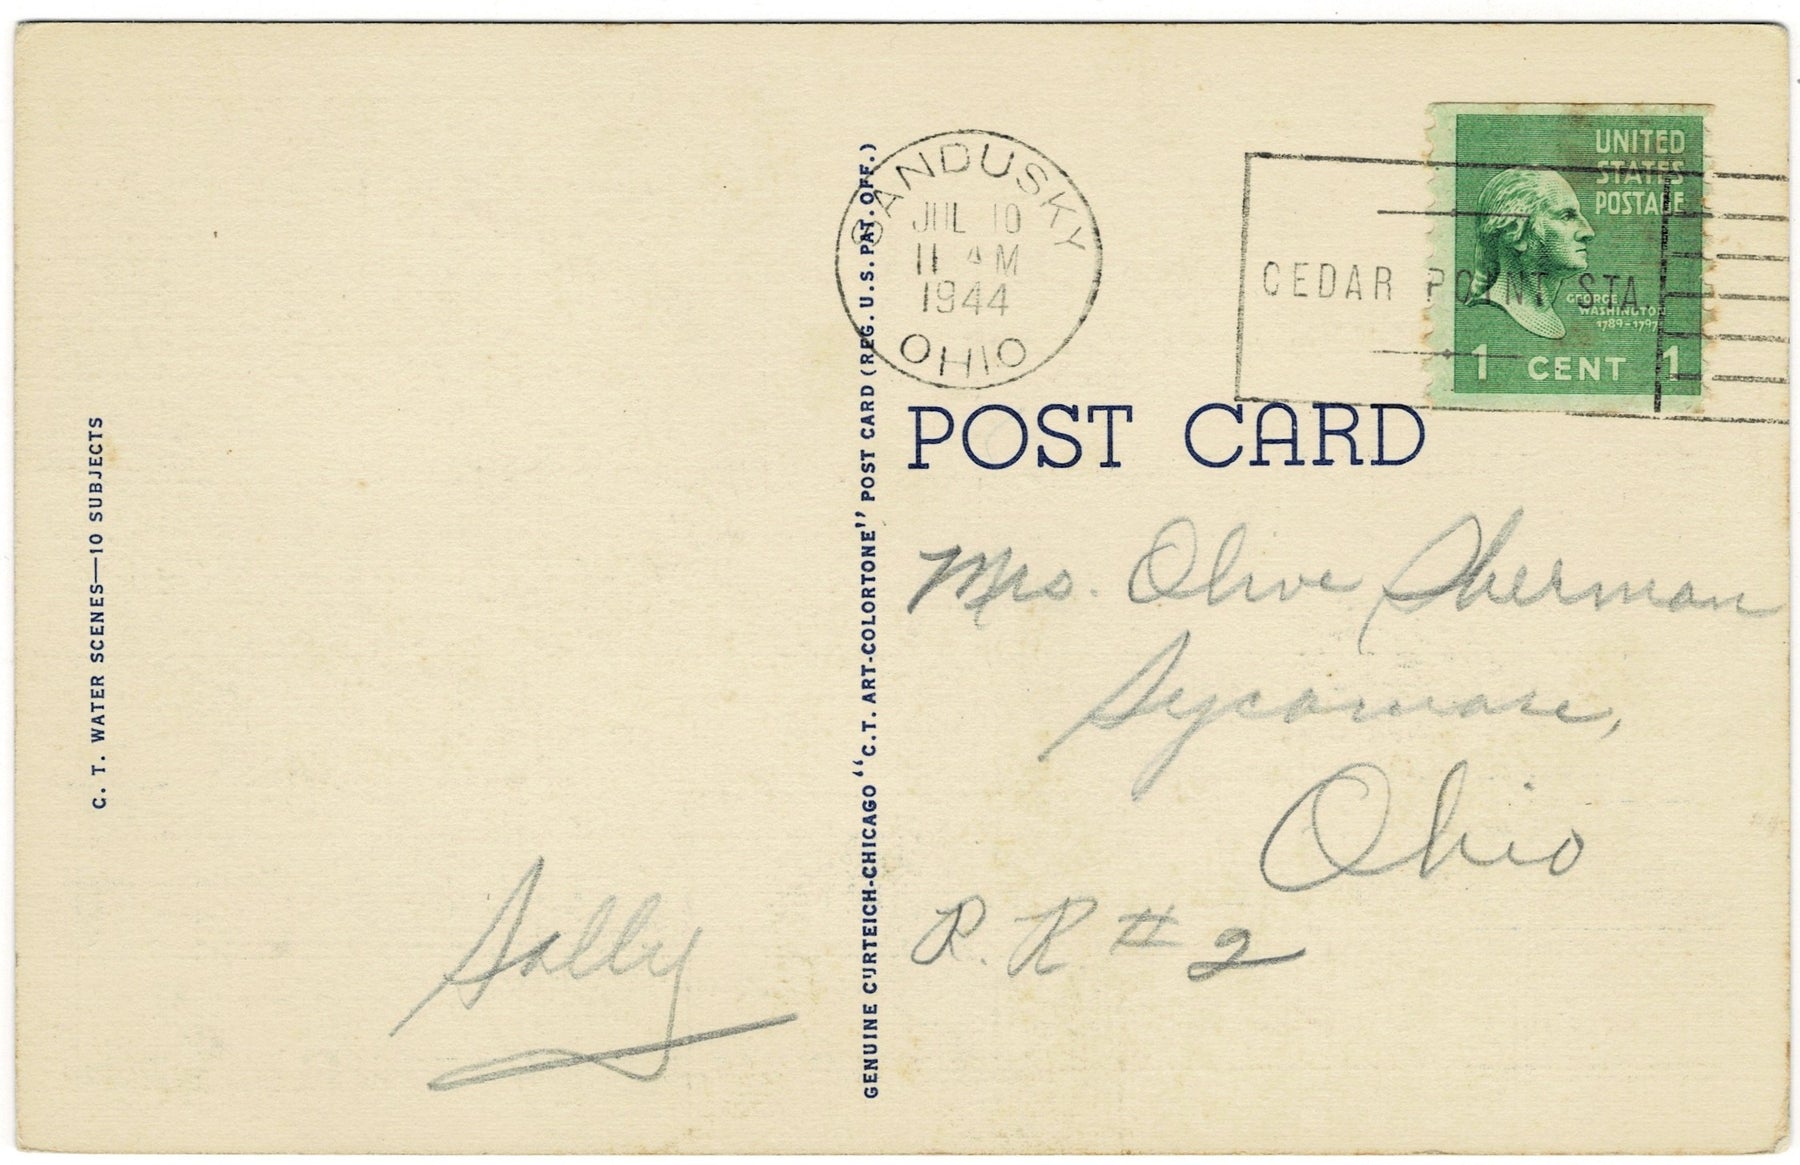 C. T. WATER SCENES—10 SUBJECTS
Sally
GENUINE CURTEICH-CHICAGO "C.T. ART-COLORTONE" POST CARD (REG. U.S. PAT. OFF.)
SANDUSKY
JUL 10
11 AM
1944
OHIO
CEDAR POINT STA.
UNITED
STATES
POSTAGE
GEORGE
WASHINGTON
1789-1797
1 CENT 1
POST CARD
Mrs. Olive Sherman
Sycamore,
Ohio
R.R # 2